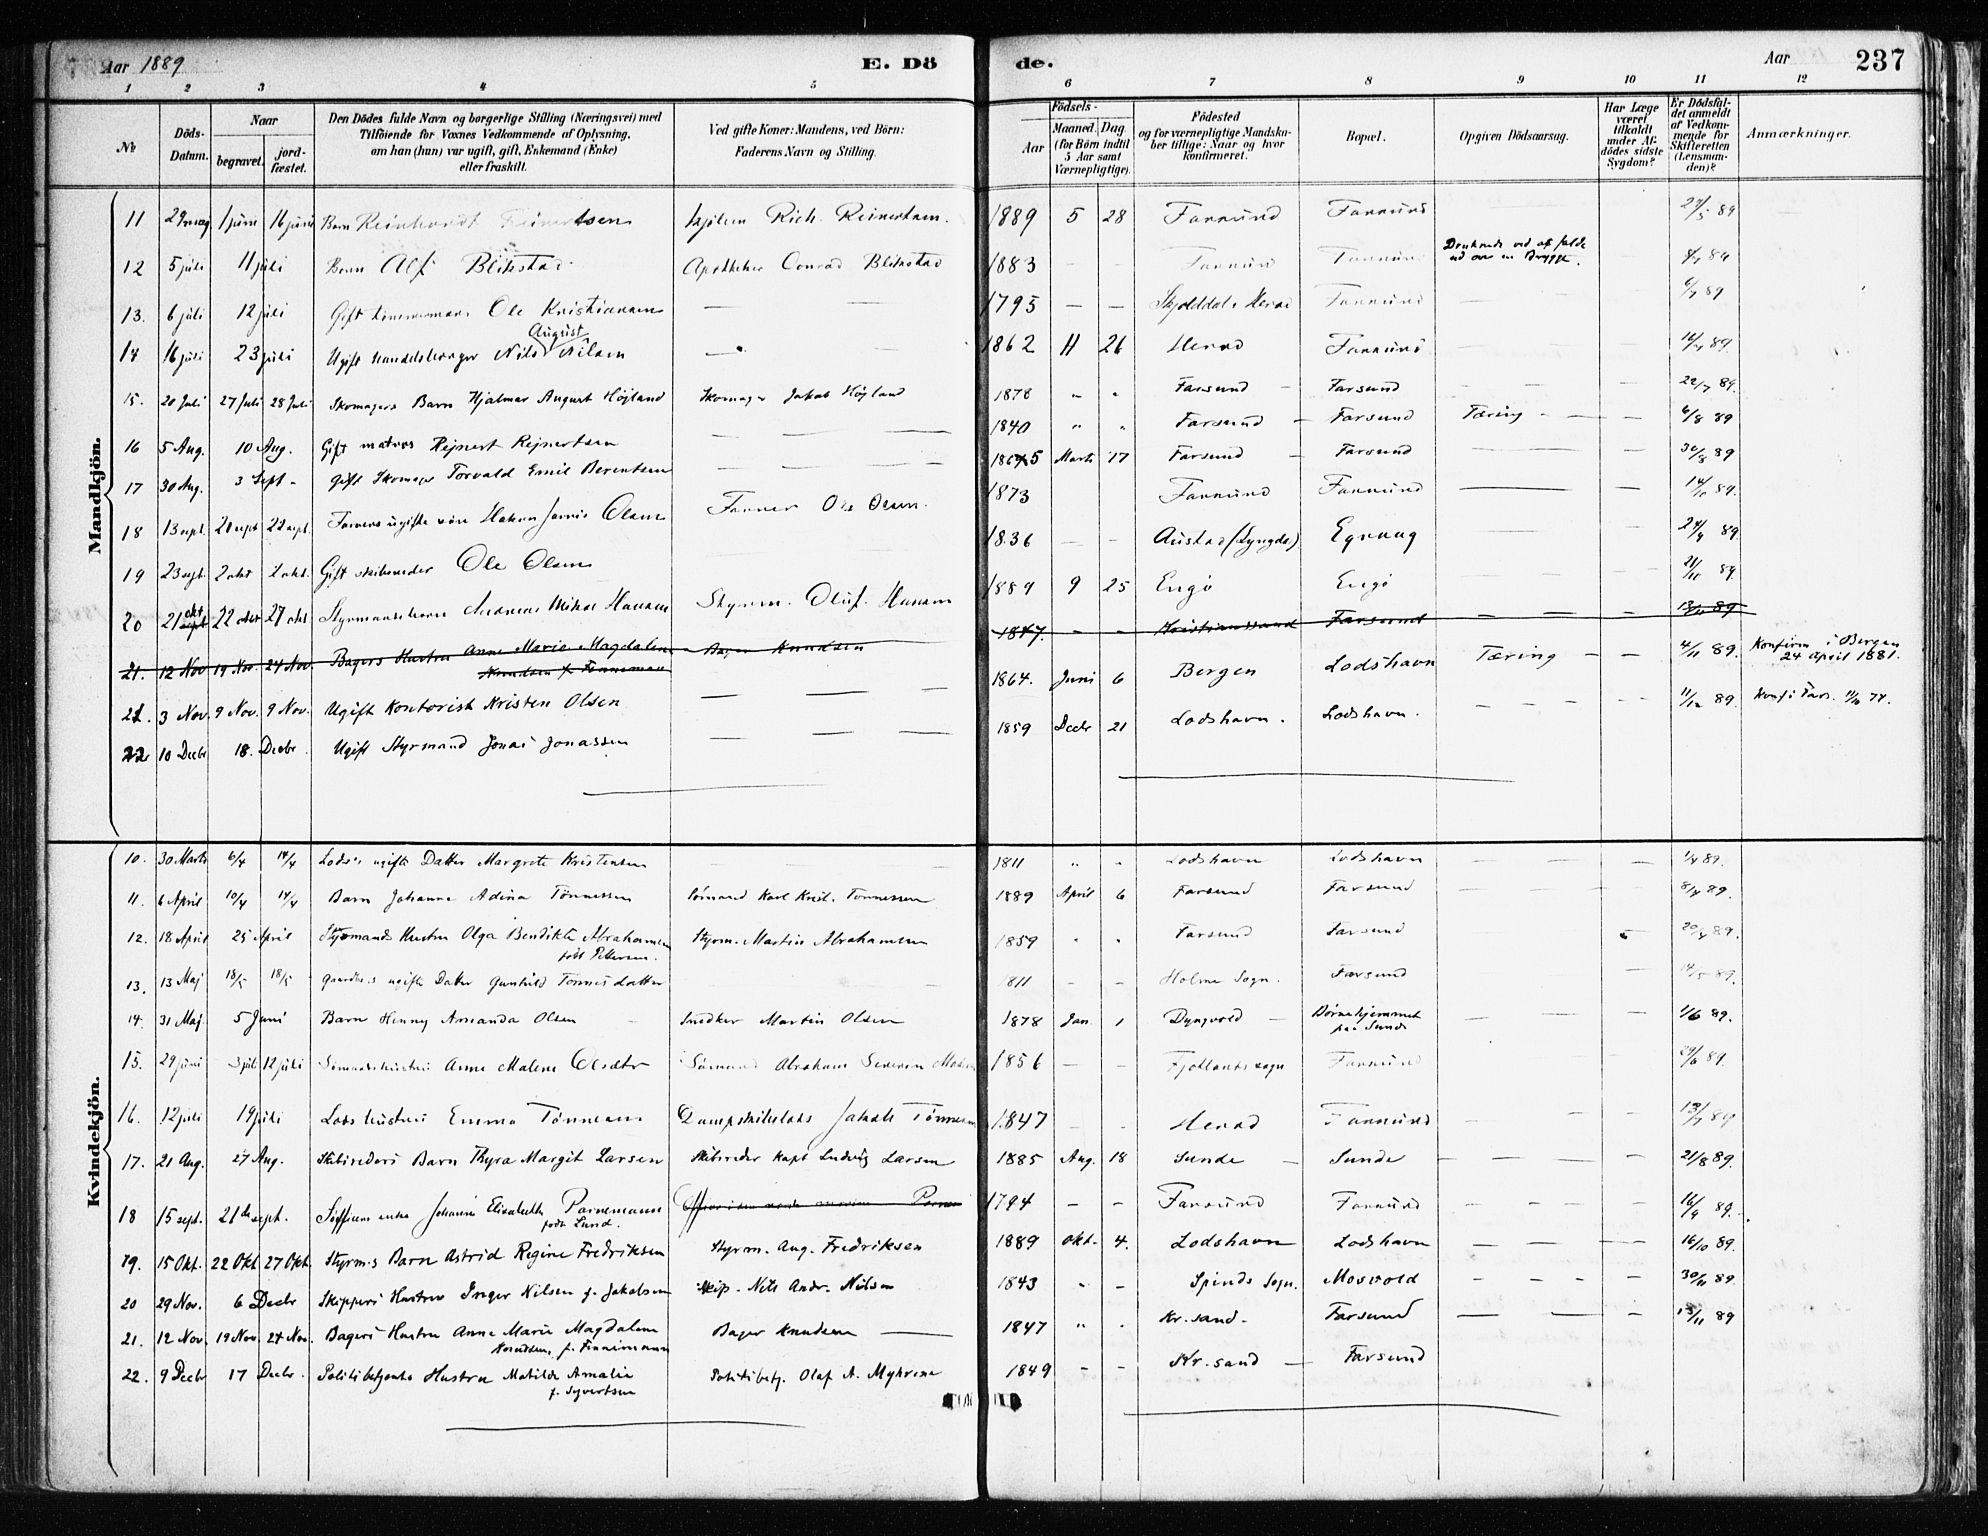 Aar 1889
E. Dö
de.
Aar
237
1 2 3 4 5 6 7 8 9 10 11 12
№
Döds-Datum.
Naar
begravet.
jordfæstet.
Den Dödes fulde Navn og borgerlige Stilling (Næringsvei) med
Tilföiende for Voxnes Vedkommende af Oplysning,
om han (hun) var ugift, gift, Enkemand (Enke)
eller fraskilt.
Ved gifte Koner: Mandens, ved Börn:
Faderens Navn og Stilling.
Födsels-
Aar
Maaned. Dag
(for Börn indtil
5 Aar samt
Værnepligtige).
Födested
og for værnepligtige Mandskaber tillige: Naar og hvor
konfirmeret.
Bopæl.
Opgiven Dödsaarsag.
Har Læge
været
tilkaldt
under Afdödes sidste
Sygdom?
Er Dödsfaldet anmeldt
af Vedkommende for
Skifteretten
(Lensmanden)?
Anmærkninger.
Mandkjön.
11 1 juni 16 juni Barn Reinhardt Reinertsen Rich. Reinertsen. 1889 5 28 Farsund Farsund 89
12 5 juli 11 juli Barn Alf Blikstad Apotheker Conrad Blikstad 1883 — — Farsund Farsund Druknede ved at falde ud over en Brygge.
13. 6 juli 12 juli Gift Ole Kristiansen — — 1795 — — Herad Farsund 89
14 16 juli 23 juli Ugift handelsborger Nils August Nilsen — 1862 11 26 Herad Farsund 89.
15. 20 Juli 27 Juli 28 Juli Skomagers Barn Hjalmar August Höjland Skomager Jakob Höjland 1878 " " Farsund — Farsund 22/7 89.
16 5 Aug. 10 Aug. Gift matros Rejnert Rejnertsen — — — 1840 " " Farsund — Farsund Tæring — — 6/8 89
17 30 Aug. 3 Sept. Gift Skomager Torvald Emil Berentsen — — — Marts 17 Farsund — Farsund — — 30/8 89
18 13 sept. 20 sept 22 sept. Farvers ugifte sön Hakon Olsen Farver Ole Olsen. 1873 Farsund Farsund — — 89.
19 23 sept. 2 okt 2 okt. Gift skibsreder Ole Olsen 1836 — — Austad (Lyngdal) Egvaag 89
20 21 okt 22 okt 27 okt Styrmansbarn Andreas Mikal Hansen Styrm. Oluf Hansen 1889 9 25 Engö Engö 89.
21. 12 Nov 19 Nov. 24 Nov. Bagers Hustru Anne Marie Magdalene Knudsen f. Finnemann Bager Knudsen 1847. — — Kristianssand Farsund — — — 13/11 89
21. 3 Nov. 9 Nov. 9 Nov. Ugift Kontorist Kristen Olsen — — — 1864. Juni 6 Bergen Lodshavn Tæring — — 4/11 89. Konfirm. i Bergen 24 April 1881.
22 10 Decbr 18. Decbr. Ugift Styrmand Jonas Jonassen — — — 1859 Decbr 21 Lodshavn. Lodshavn. — — — — 11/12 89.
Kvindekjön.
10. 30 Marts 6/4 14/4 Lods's ugifte Datter Margrete Kristensen 1811 " " Lodshavn Lodshavn 1/4 89.
11. 6 April 10/4 14/4 Barn Johanne Adina Tönnessen Sömand Karl Krist. Tönnessen 1889 April 6 Farsund Farsund 8/4 89.
12. 18 April 25 April Styrmands Hustru Olga Bendikte Abrahamsen född Pettersen. Styrm. Martin Abrahamsen 1859 " " Farsund Farsund 20/4 89.
13. 13 Maj 18/5 18/5 ugifte Datter Gunhild Tönnesdatter 1811 — — Holme Sogn. Farsund 14/5 89.
14. 31 Maj. 5 Juni Barn Henny Amanda Olsen Snedker Martin Olsen 1878 Jan. 1 Dyngvold — Börnehjemmet paa Sunde 1/6 89.
15. 29 juni 3 juli 12 juli Sömandshustru Anne Malene Olsdtr Sömand Abraham Severin 1856 — — Fjotlands sogn Farsund 89.
16. 12 juli 19 juli Lods hustru Emma Tönnesen Dampskibslods Jakob Tönnesen 1847 — — Herad Farsund 13/7 89
17. 21 Aug. 27 Aug. Skibsreders Barn Thyra Margit Larsen Skibsreder Kapt Ludvig Larsen 1885 Aug. 18 Sunde — Sunde — — — 21/8 89.
18 15 sept. 21de sept. enke Johanne Elisabeth Parnemann född Lund. 1794 — — Farsund Farsund 16/9 89.
19. 15 Okt. 22 Okt 27 Okt. Styrm.s Barn Astrid Regine Fredriksen Styrm. Aug. Fredriksen 1889 Okt. 4. Lodshavn Lodshavn — — — 16/10 89.
20 29 Nov. 6 Decbr Skippers Hustru Inger Nilsen f. Jakobsen Skip. Nils Andr. Nilsen 1843 " — Spinds Sogn. Mosvold — — — 30/11 89.
21. 12 Nov. 19 Nov. 24 Nov. Bagers Hustru Anne Marie Magdalene Knudsen, f. Finnemann Bager Knudsen — 1847 " " Kr.sand. Farsund — — — 13/11 89
22. 9 Decbr 17 Decbr. Politibetjents Hustru Matilde Amalie f. Syvertsen Politibetj. Olaf A. Myhrene 1849 — — Kr.sand — Farsund